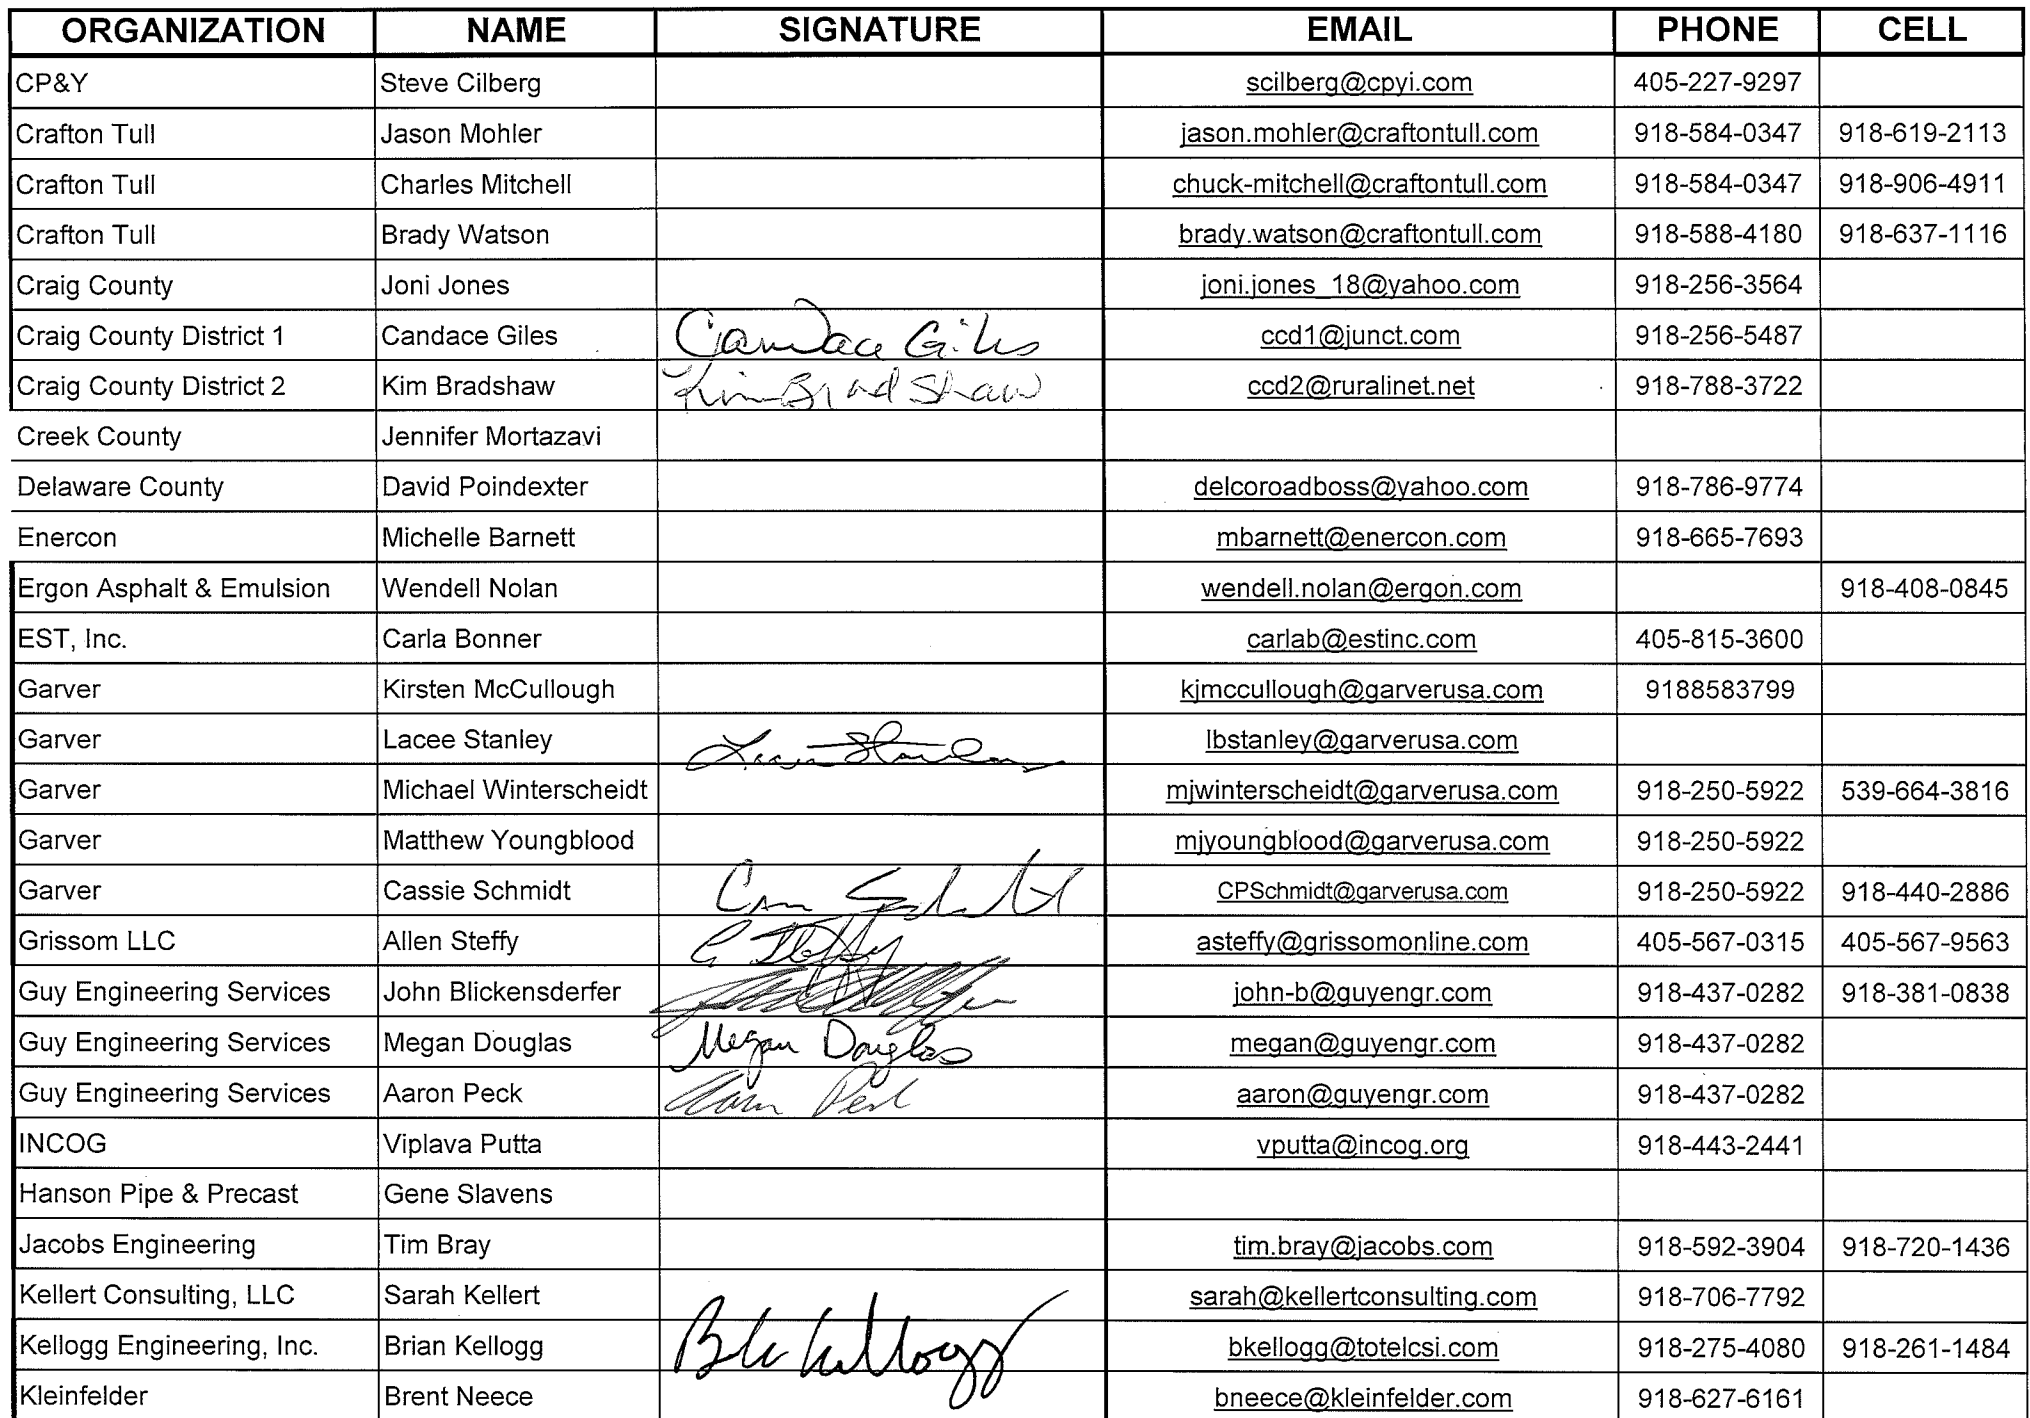 ORGANIZATION NAME SIGNATURE EMAIL PHONE CELL
CP&Y Steve Cilberg scilberg@cpyi.com 405-227-9297
Crafton Tull Jason Mohler jason.mohler@craftontull.com 918-584-0347 918-619-2113
Crafton Tull Charles Mitchell chuck-mitchell@craftontull.com 918-584-0347 918-906-4911
Crafton Tull Brady Watson brady.watson@craftontull.com 918-588-4180 918-637-1116
Craig County Joni Jones joni.jones_18@yahoo.com 918-256-3564
Craig County District 1 Candace Giles Candace Giles ccd1@junct.com 918-256-5487
Craig County District 2 Kim Bradshaw Kim Bradshaw ccd2@ruralinet.net 918-788-3722
Creek County Jennifer Mortazavi
Delaware County David Poindexter delcoroadboss@yahoo.com 918-786-9774
Enercon Michelle Barnett mbarnett@enercon.com 918-665-7693
Ergon Asphalt & Emulsion Wendell Nolan wendell.nolan@ergon.com 918-408-0845
EST, Inc. Carla Bonner carlab@estinc.com 405-815-3600
Garver Kirsten McCullough kjmccullough@garverusa.com 9188583799
Garver Lacee Stanley Lacee Stanley lbstanley@garverusa.com
Garver Michael Winterscheidt mjwinterscheidt@garverusa.com 918-250-5922 539-664-3816
Garver Matthew Youngblood mjyoungblood@garverusa.com 918-250-5922
Garver Cassie Schmidt CPSchmidt@garverusa.com 918-250-5922 918-440-2886
Grissom LLC Allen Steffy Steffy asteffy@grissomonline.com 405-567-0315 405-567-9563
Guy Engineering Services John Blickensderfer john-b@guyengr.com 918-437-0282 918-381-0838
Guy Engineering Services Megan Douglas Megan Douglas megan@guyengr.com 918-437-0282
Guy Engineering Services Aaron Peck Aaron Peck aaron@guyengr.com 918-437-0282
INCOG Viplava Putta vputta@incog.org 918-443-2441
Hanson Pipe & Precast Gene Slavens
Jacobs Engineering Tim Bray tim.bray@jacobs.com 918-592-3904 918-720-1436
Kellert Consulting, LLC Sarah Kellert sarah@kellertconsulting.com 918-706-7792
Kellogg Engineering, Inc. Brian Kellogg Kellogg bkellogg@totelcsi.com 918-275-4080 918-261-1484
Kleinfelder Brent Neece bneece@kleinfelder.com 918-627-6161